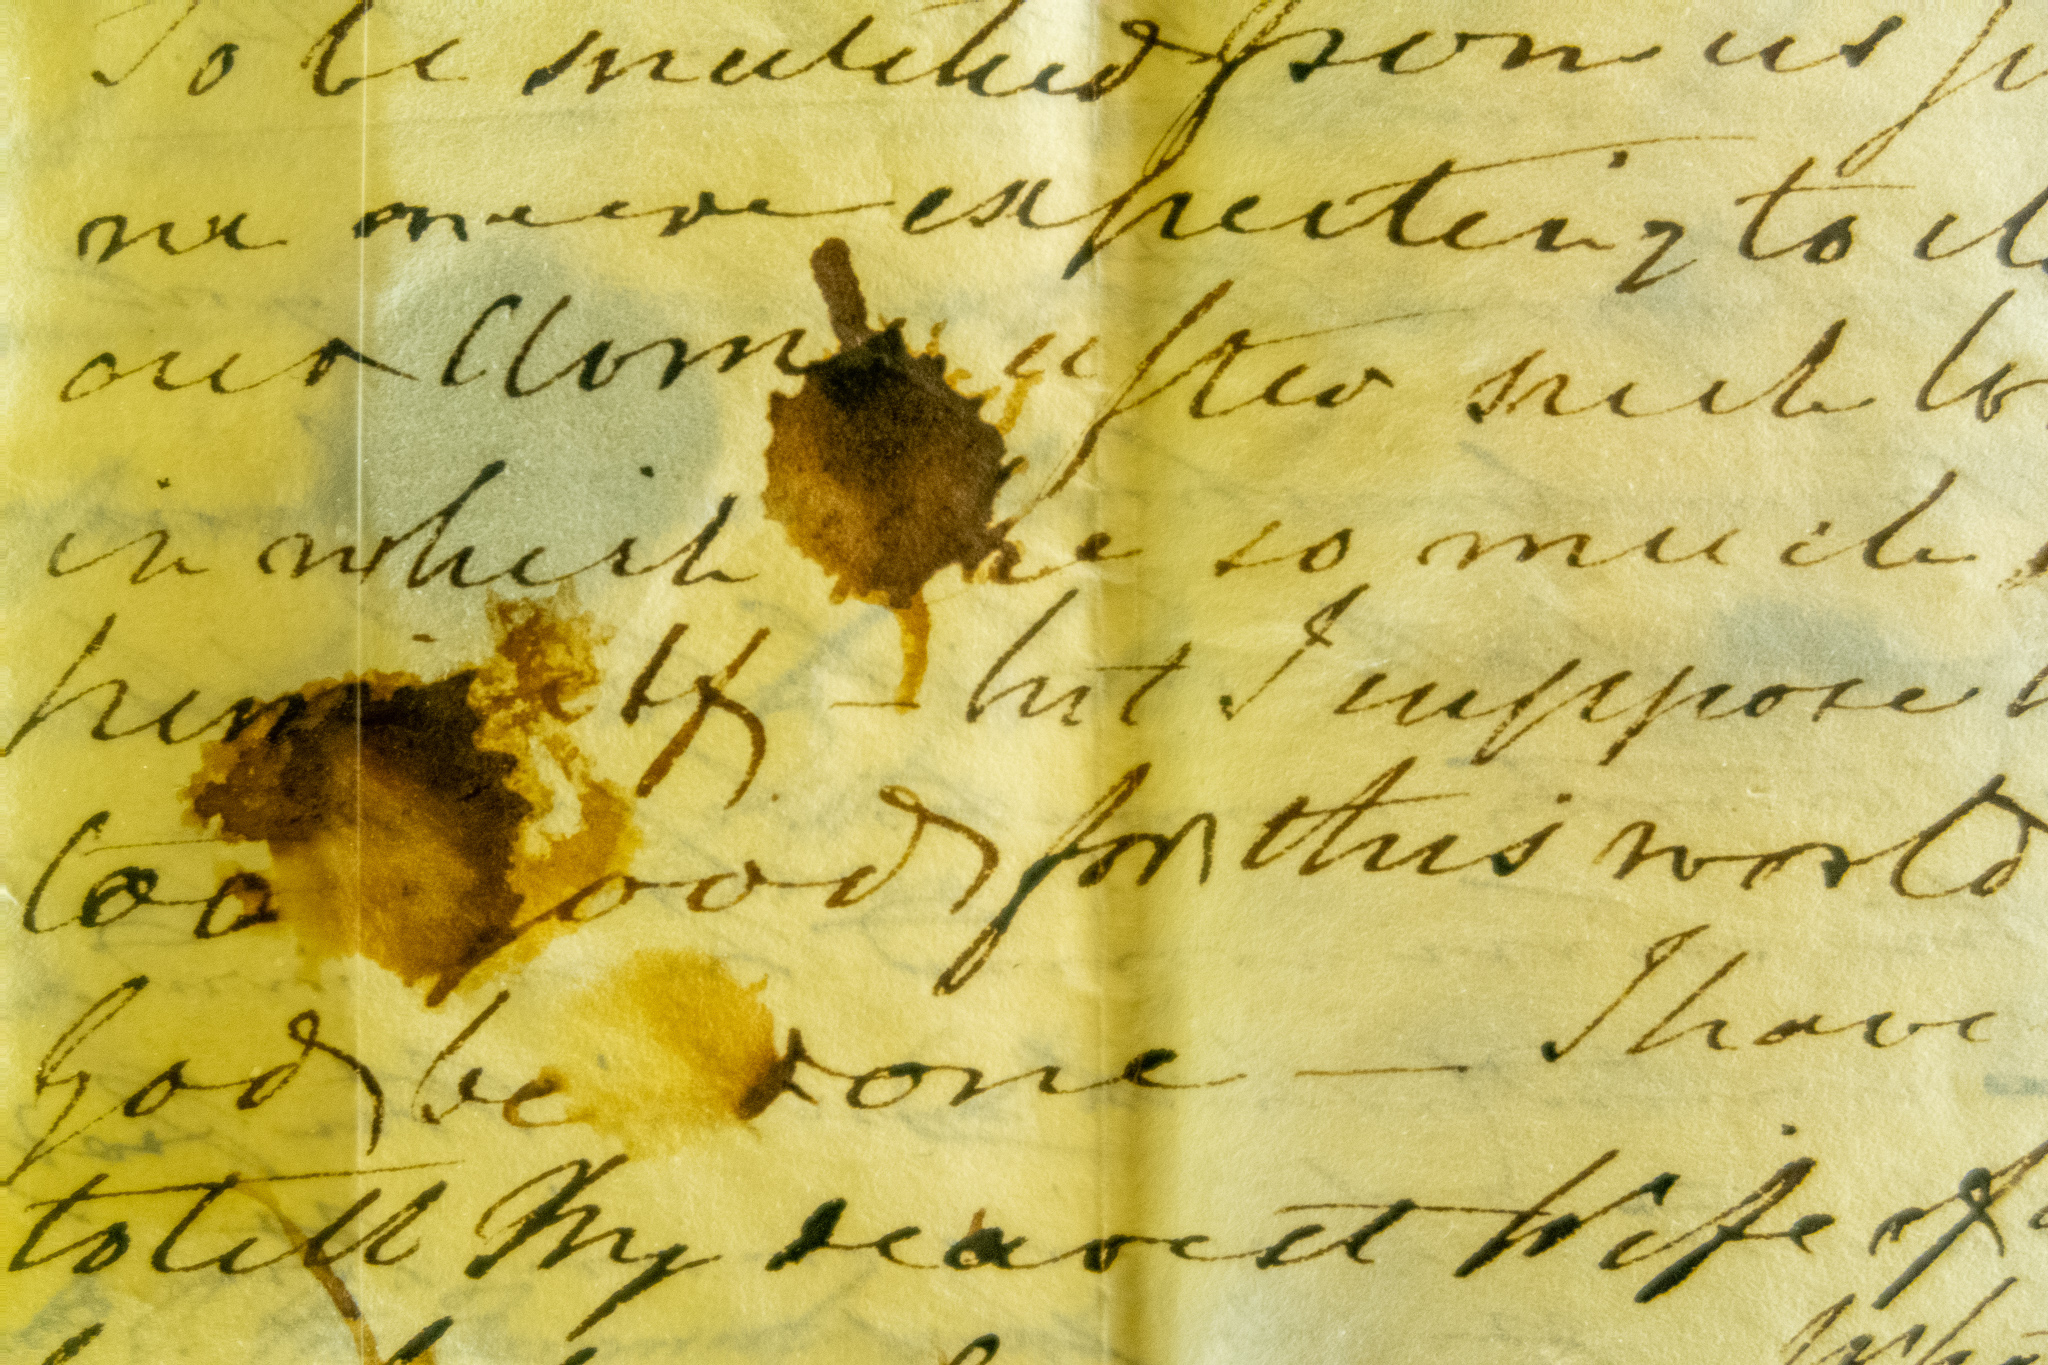 To be snatched from us ju
we were expecting to
our after such
in which he so much
himself — but I suppose
too good for this world
God be done — I have
to tell My dearest Wife of